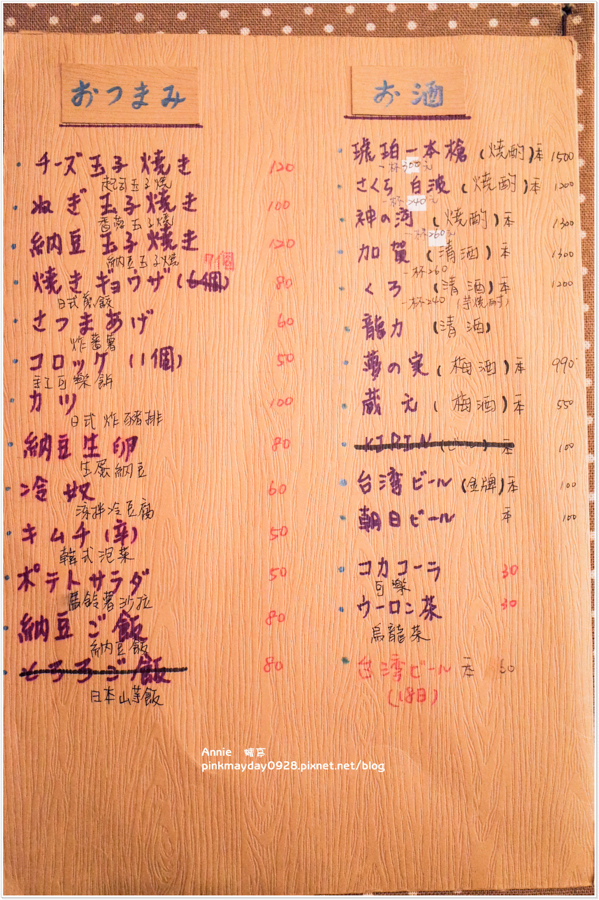 おつまみ
チーズ玉子焼き 120
起司玉子燒
ねぎ玉子焼き 100
香蔥玉子燒
納豆玉子焼き 120
納豆玉子燒
7個
焼きギョウザ(6個) 80
日式煎餃
さつまあげ 60
炸蕃薯
コロッケ(1個) 50
可樂餅
カツ 100
日式炸豬排
納豆生卵 80
生蛋納豆
冷奴 60
涼拌冷豆腐
キムチ(辛) 50
韓式泡菜
ポテトサラダ 50
馬鈴薯沙拉
納豆ご飯 80
納豆飯
とろろご飯 80
日本山芋飯
お酒
琥珀一本槍(焼酌)本 1500
一杯300元
さくら白波(焼酌)本 1200
一杯240元
神の河(焼酌)本 1300
一杯260元
加賀(清酒)本 1300
一杯260
くろ(清酒)本 1200
一杯240(芋焼酎)
龍力(清酒)
夢の実(梅酒)本 990
蔵元(梅酒)本 550
KIRIN(ビール)本 100
台湾ビール(金牌)本 100
朝日ビール 本 100
コカコーラ 30
可樂
ウーロン茶 30
烏龍茶
台湾ビール 本 60
(18日)
Annie
pinkmayday0928.pixnet.net/blog